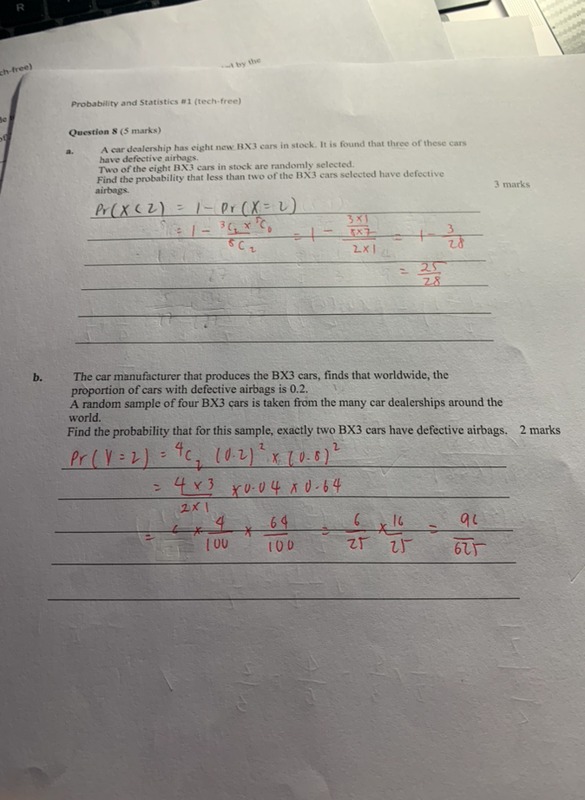 R
ch-free)
by the
Probability and Statistics #1 (tech-free)
Question 8 (5 marks)
a. A car dealership has eight new BX3 cars in stock. It is found that three of these cars
have defective airbags.
Two of the eight BX3 cars in stock are randomly selected.
Find the probability that less than two of the BX3 cars selected have defective
airbags. 3 marks
Pr(X<2) = 1 - Pr(X=2)
= 1 - ³C₂ x ⁵C₀ / ⁸C₂ = 1 - 3x1 / 8x7 / 2x1 = 1 - 3/28
= 25/28
b. The car manufacturer that produces the BX3 cars, finds that worldwide, the
proportion of cars with defective airbags is 0.2.
A random sample of four BX3 cars is taken from the many car dealerships around the
world.
Find the probability that for this sample, exactly two BX3 cars have defective airbags. 2 marks
Pr(V=2) = ⁴C₂ (0.2)² x (0.8)²
= 4x3 / 2x1 x 0.04 x 0.64
= 6 x 4/100 x 64/100 = 6/25 x 16/25 = 96/625